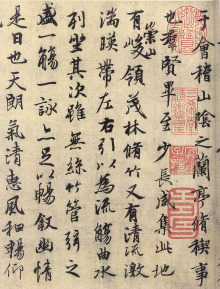 于會稽山陰之蘭亭脩稧事
也羣賢畢至少長咸集此地
崇山
有峻領茂林脩竹又有清流激
湍暎帶左右引以為流觴曲水
列坐其次雖無絲竹管弦之
盛一觴一詠亦足以暢敘幽情
是日也天朗氣清惠風和暢仰